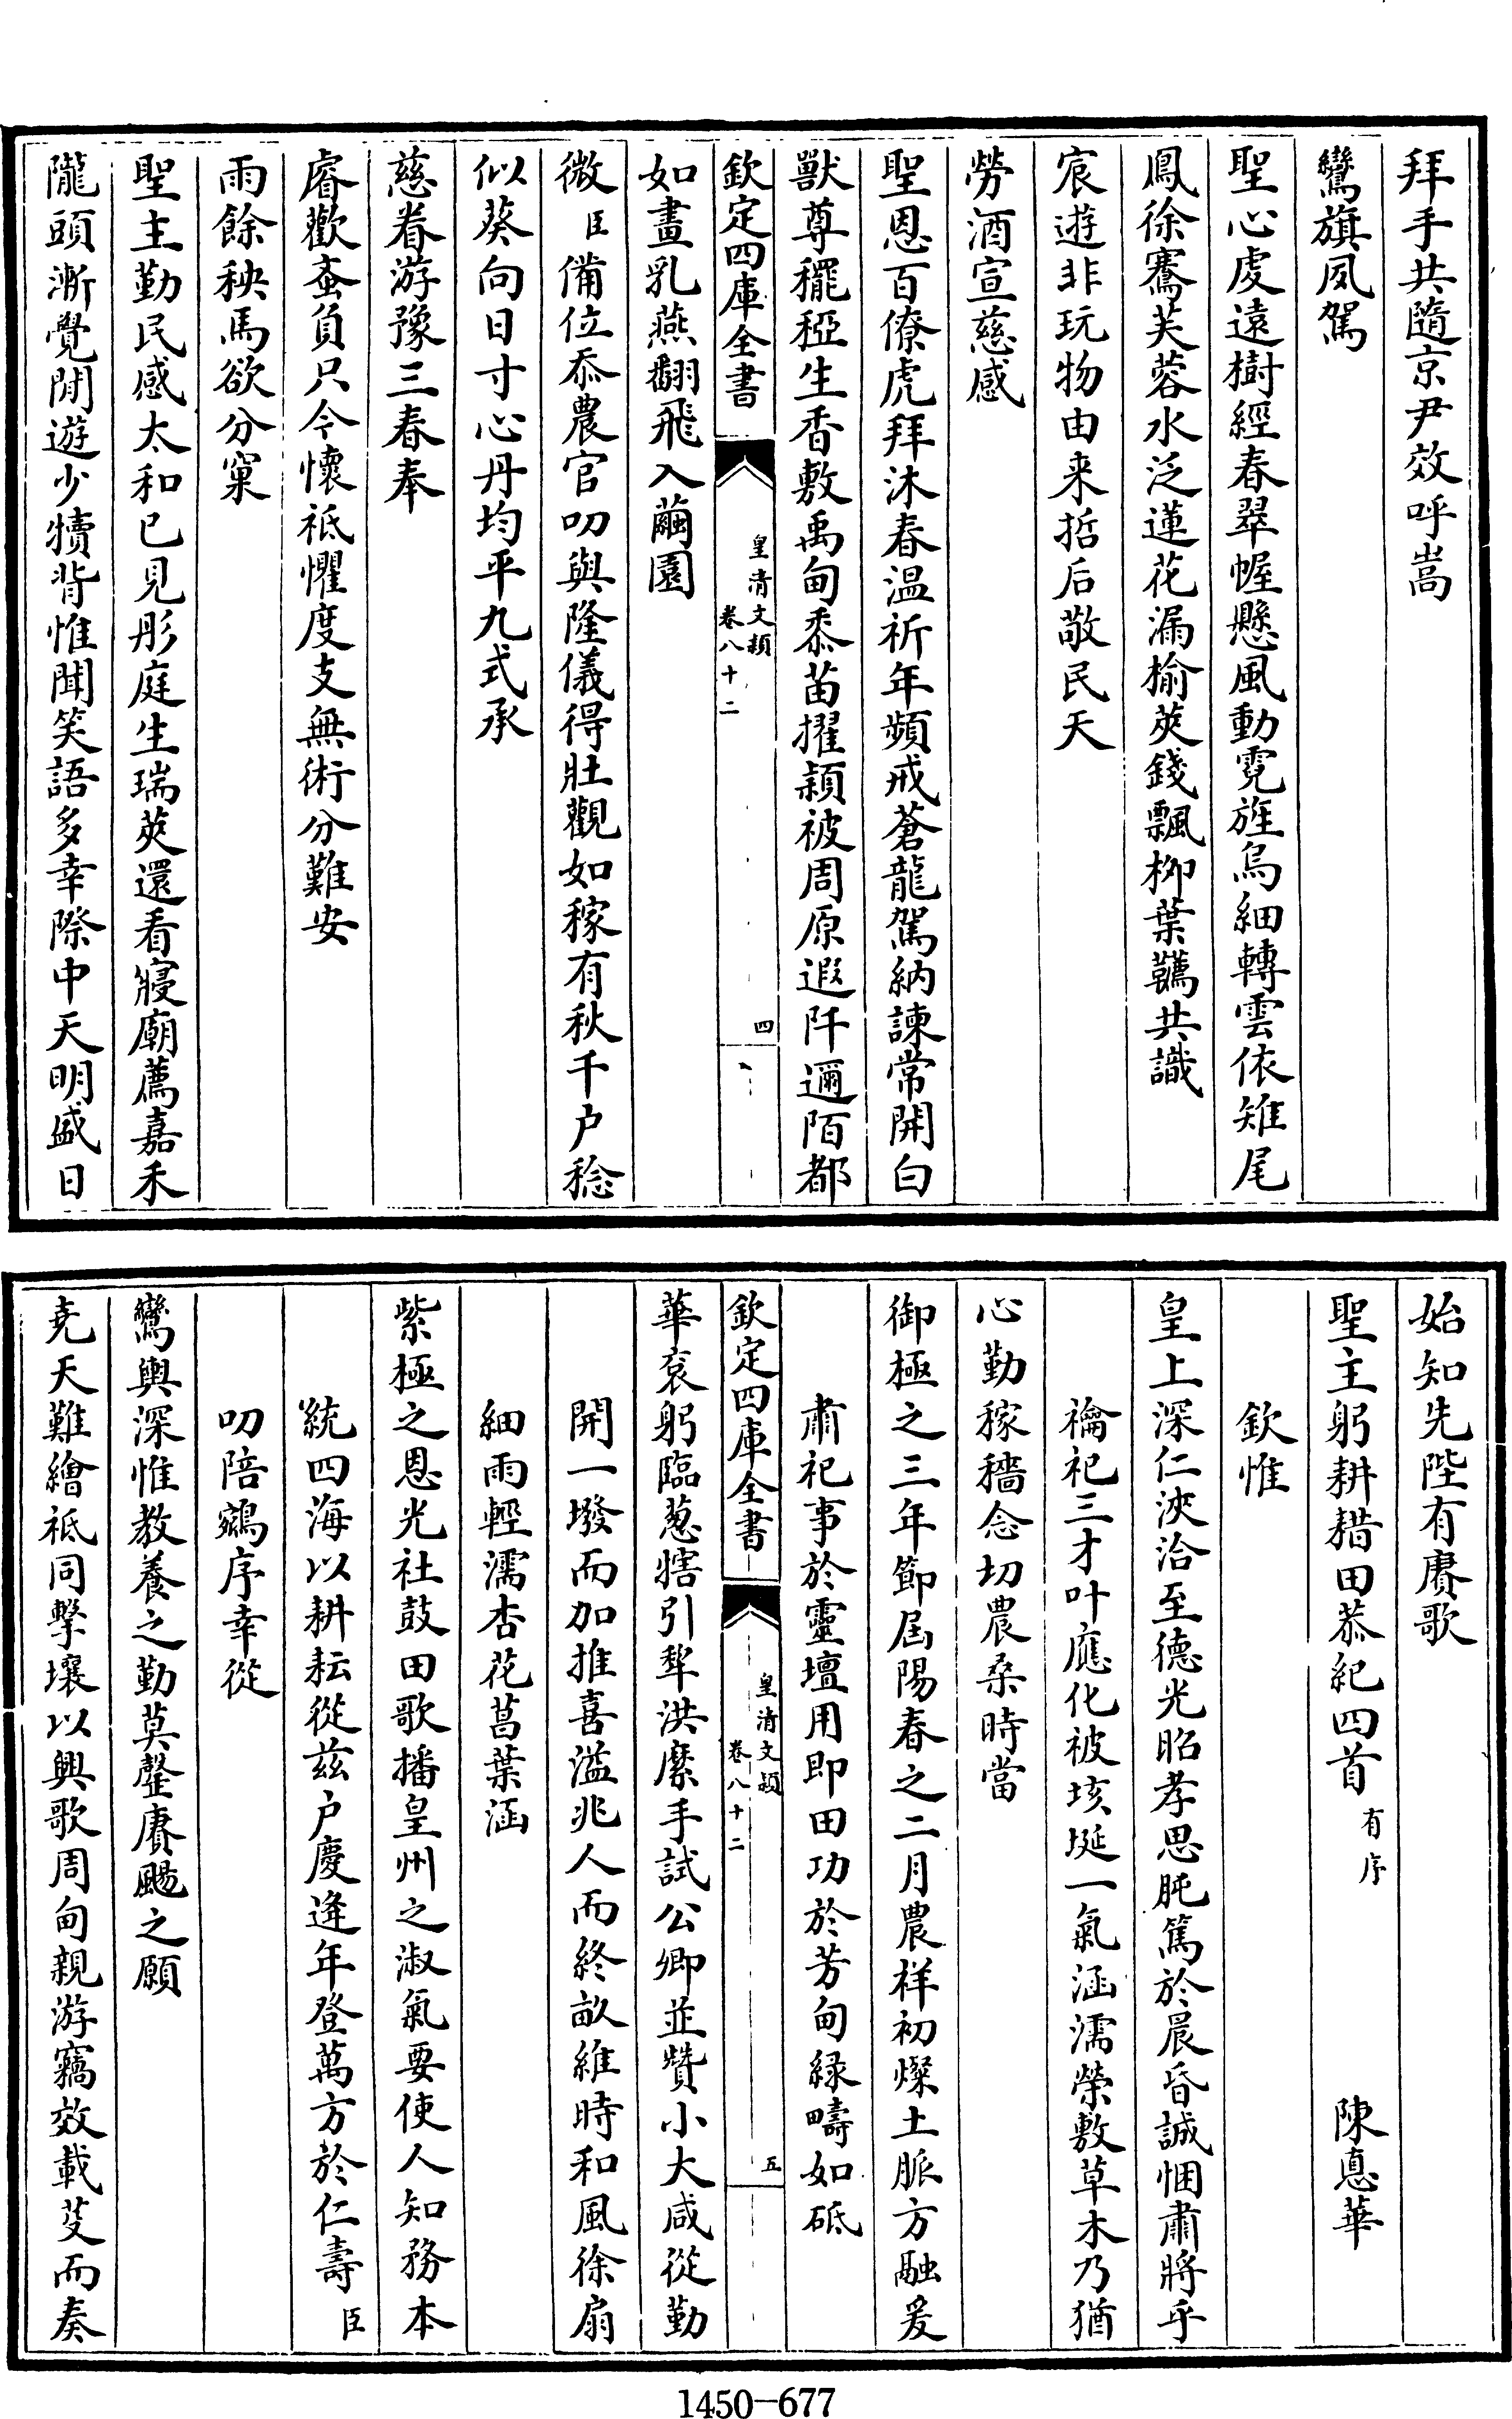 拜手共隨京尹效呼嵩
鸞旗夙駕
聖心虔遠樹經春翠幄懸風動霓旌烏細轉雲依雉尾
鳳徐騫芙蓉水泛蓮花漏榆莢錢飄柳葉韉共識
宸遊非玩物由来哲后敬民天
勞酒宣慈感
聖恩百僚虎拜沐春温祈年頻戒蒼龍駕納諫常開白
獸尊䆉稏生香敷禹甸黍苗擢穎被周原遐阡邇陌都
欽定四庫全書
皇清文頴
卷八十二
四
如畫乳燕翻飛入繭園
微臣備位忝農官叨與隆儀得壯觀如稼有秋千户稔
似葵向日寸心丹均平九式承
慈眷游豫三春奉
睿歡蚉負只今懷祗懼度支無術分難安
雨餘秧馬欲分窠
聖主勤民感太和已見彤庭生瑞莢還看寢廟薦嘉禾
隴頭漸覺閒遊少犢背惟聞笑語多幸際中天明盛日
始知先陛有賡歌
聖主躬耕耤田恭紀四首有序 陳惪華
欽惟
皇上深仁浹洽至德光昭孝思肫篤於晨昏誠悃肅將乎
禴祀三才叶應化被垓埏一氣涵濡榮敷草木乃猶
心勤稼穡念切農桑時當
御極之三年節屆陽春之二月農祥初燦土脈方融爰
肅祀事於靈壇用即田功於芳甸緑疇如砥
欽定四庫全書
皇清文頴
卷八十二
五
華衮躬臨葱犗引犂洪縻手試公卿並贊小大咸從勤
開一墢而加推喜溢兆人而終畝維時和風徐扇
細雨輕濡杏花菖葉涵
紫極之恩光社鼓田歌播皇州之淑氣要使人知務本
統四海以耕耘從兹户慶逢年登萬方於仁壽臣
叨陪鵷序幸從
鸞輿深惟教養之勤莫罄賡颺之願
尭天難繪祗同擊壤以興歌周甸親游竊效載芟而奏
1450—677